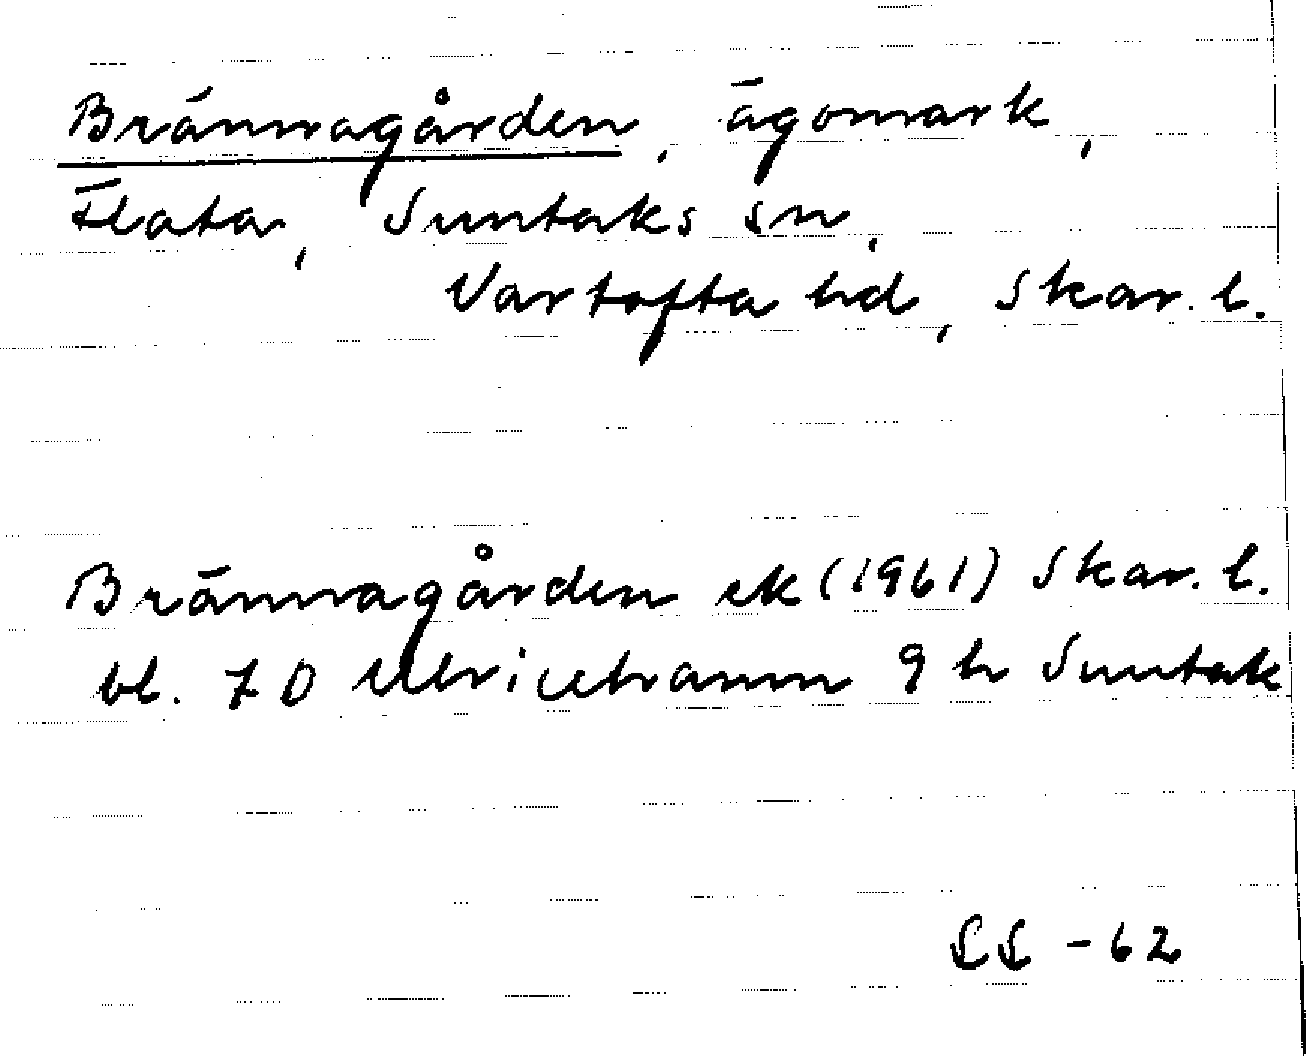 Brännagården, ägomark,
Flata, Suntaks sn,
Vartofta hd, Skar. l.
Brännagården ek (1961) Skar. l.
bl. 7D Ulricehamn 9 h Suntak
-62